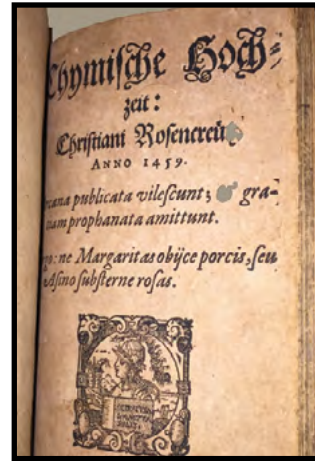 Chymische Hoch-
zeit:
Christiani
ANNO 1459.
publicata vilescunt; gra-
prophanata amittunt.
ne Margaritas obijce porcis, seu
Asino substerne rosas.